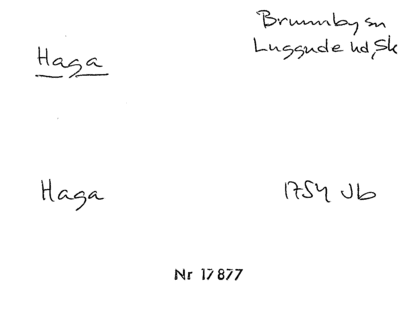 Haga
Brunnby sn
Luggude hd, Sk
Haga
1754 Jb
Nr 17877